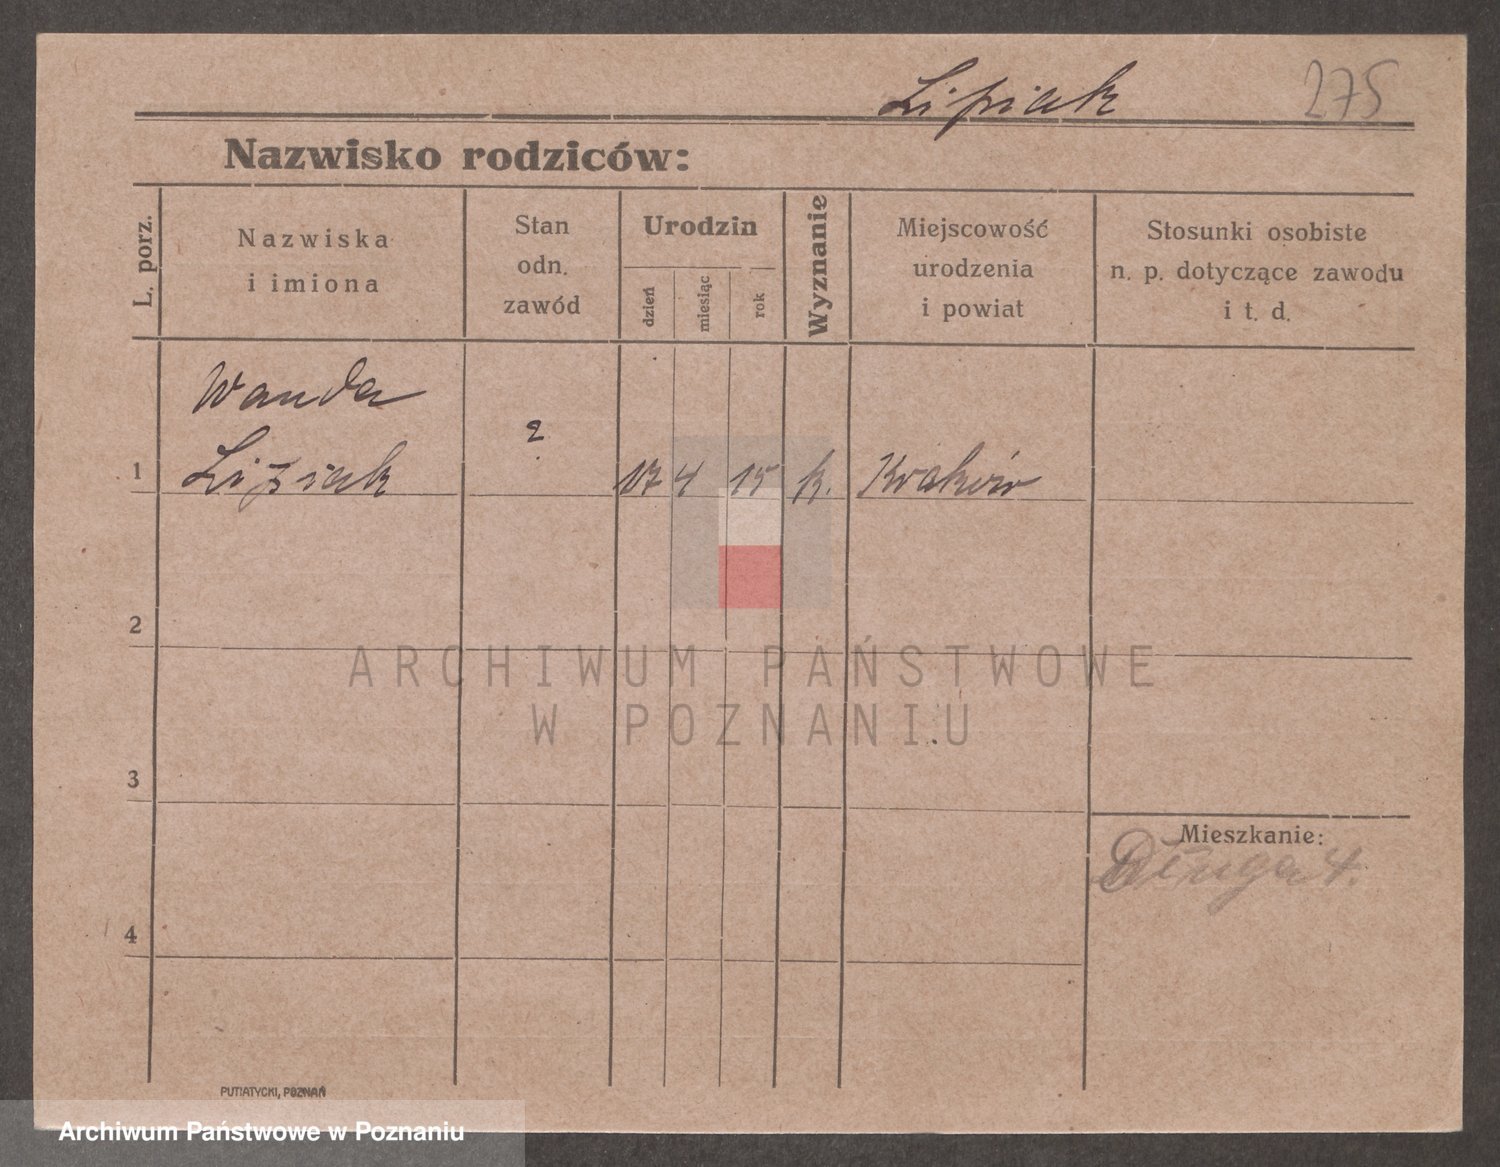 Lipiak 275
Nazwisko rodziców:
L. porz.
Nazwiska
i imiona
Stan
odn.
zawód
Urodzin
dzień
miesiąc
rok
Wyznanie
Miejscowość
urodzenia
i powiat
Stosunki osobiste
n. p. dotyczące zawodu
i t. d.
Wanda
1 Lipiak 2 17 4 15 k. Kraków
2
ARCHIWUM PAŃSTWOWE
W POZNANIU
3
Mieszkanie:
4.
4
PUTIATYCKI, POZNAŃ
Archiwum Państwowe w Poznaniu